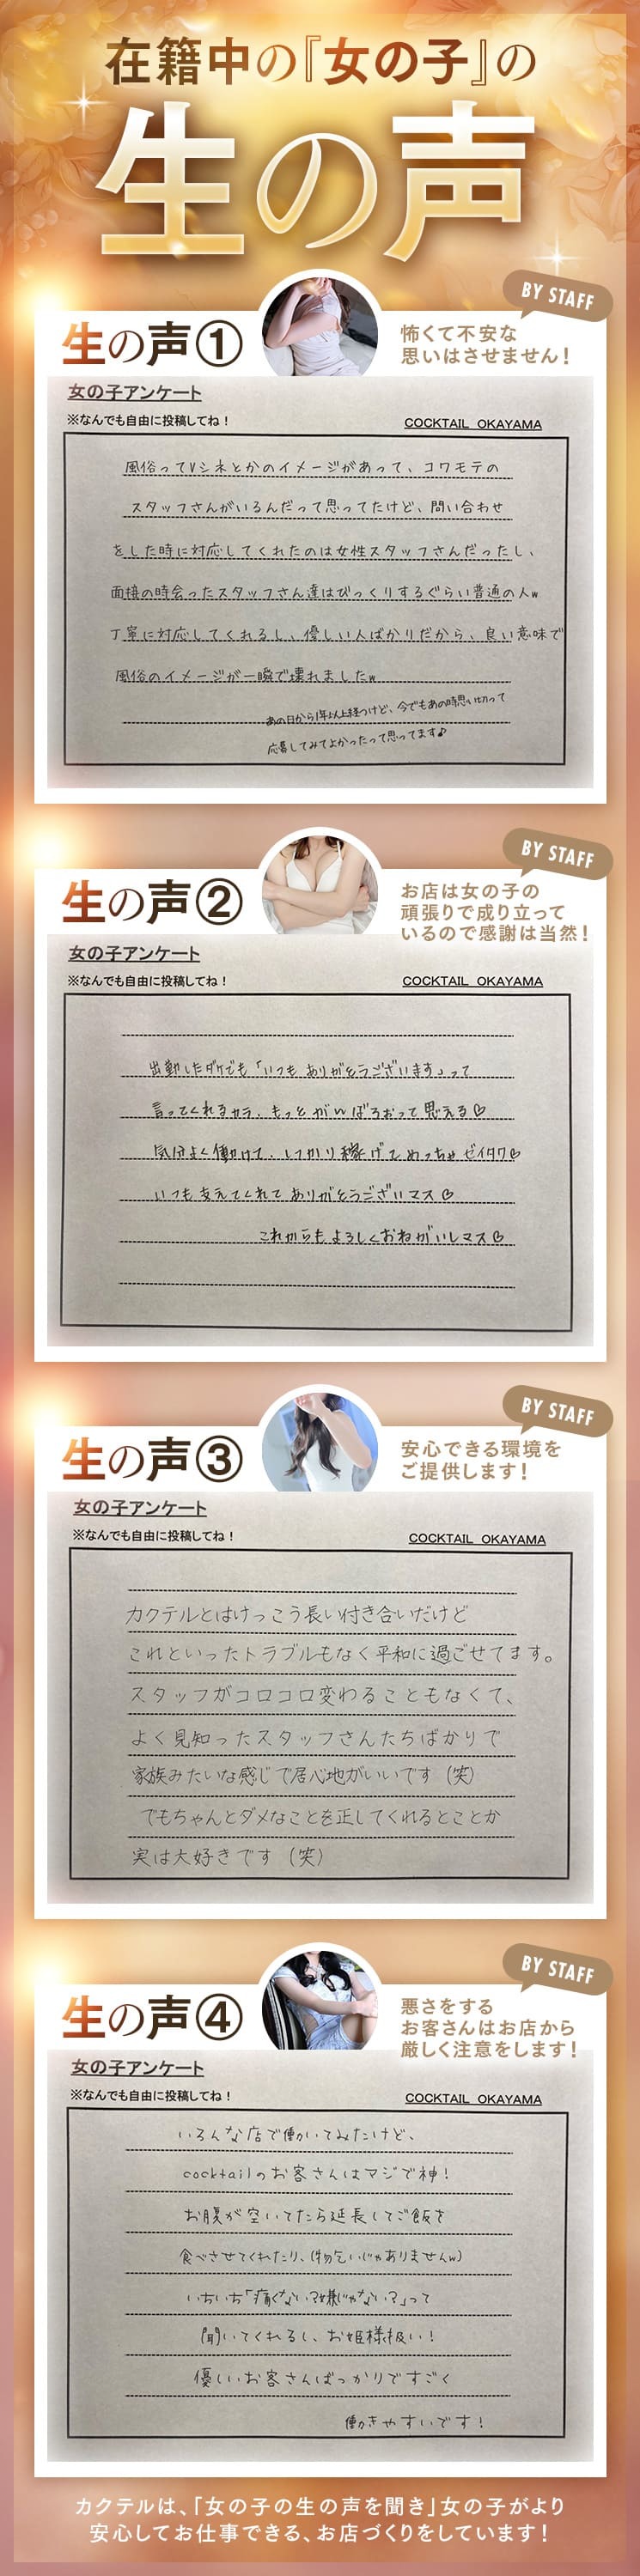 在籍中の『女の子』の
生の声
BY STAFF
生の声①
怖くて不安な
思いはさせません！
女の子アンケート
※なんでも自由に投稿してね！
COCKTAIL OKAYAMA
風俗ってVシネとかのイメージがあって、コワモテの
スタッフさんがいるんだって思ってたけど、問い合わせ
をした時に対応してくれたのは女性スタッフさんだったし、
面接の時会ったスタッフさん達はびっくりするぐらい普通の人w
丁寧に対応してくれるし、優しい人ばかりだから、良い意味で
風俗のイメージが一瞬で壊れましたw
あの日から1年以上経つけど、今でもあの時思い切って
応募してみてよかったって思ってます♪
BY STAFF
生の声②
お店は女の子の
頑張りで成り立って
いるので感謝は当然！
女の子アンケート
※なんでも自由に投稿してね！
COCKTAIL OKAYAMA
出勤したダケでも「いつも ありがとうございます」って
言ってくれるカラ、もっと がんばろおって 思える♡
気分よく働けて、しっかり稼げて めっちゃ ゼイタク♡
いつも 支えてくれて ありがとうございマス♡
これからも よろしくおねがいしマス♡
BY STAFF
生の声③
安心できる環境を
ご提供します！
女の子アンケート
※なんでも自由に投稿してね！
COCKTAIL OKAYAMA
カクテルとはけっこう長い付き合いだけど
これといったトラブルもなく平和に過ごせてます。
スタッフがコロコロ変わることもなくて、
よく見知ったスタッフさんたちばかりで
家族みたいな感じで居心地がいいです（笑）
でもちゃんとダメなことを正してくれるとことか
実は大好きです（笑）
BY STAFF
生の声④
悪さをする
お客さんはお店から
厳しく注意をします！
女の子アンケート
※なんでも自由に投稿してね！
COCKTAIL OKAYAMA
いろんな店で働いてみたけど、
cocktailのお客さんはマジで神！
お腹が空いてたら延長してご飯を
食べさせてくれたり、（物乞いじゃありませんw）
いちいち「痛くない？嫌じゃない？」って
聞いてくれるし、お姫様扱い！
優しいお客さんばっかりですごく
働きやすいです！
カクテルは、「女の子の生の声を聞き」女の子がより
安心してお仕事できる、お店づくりをしています！